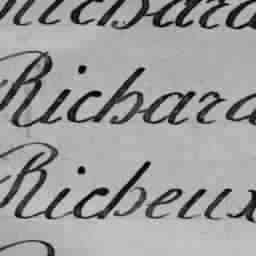 Richard
Richard
Richeux